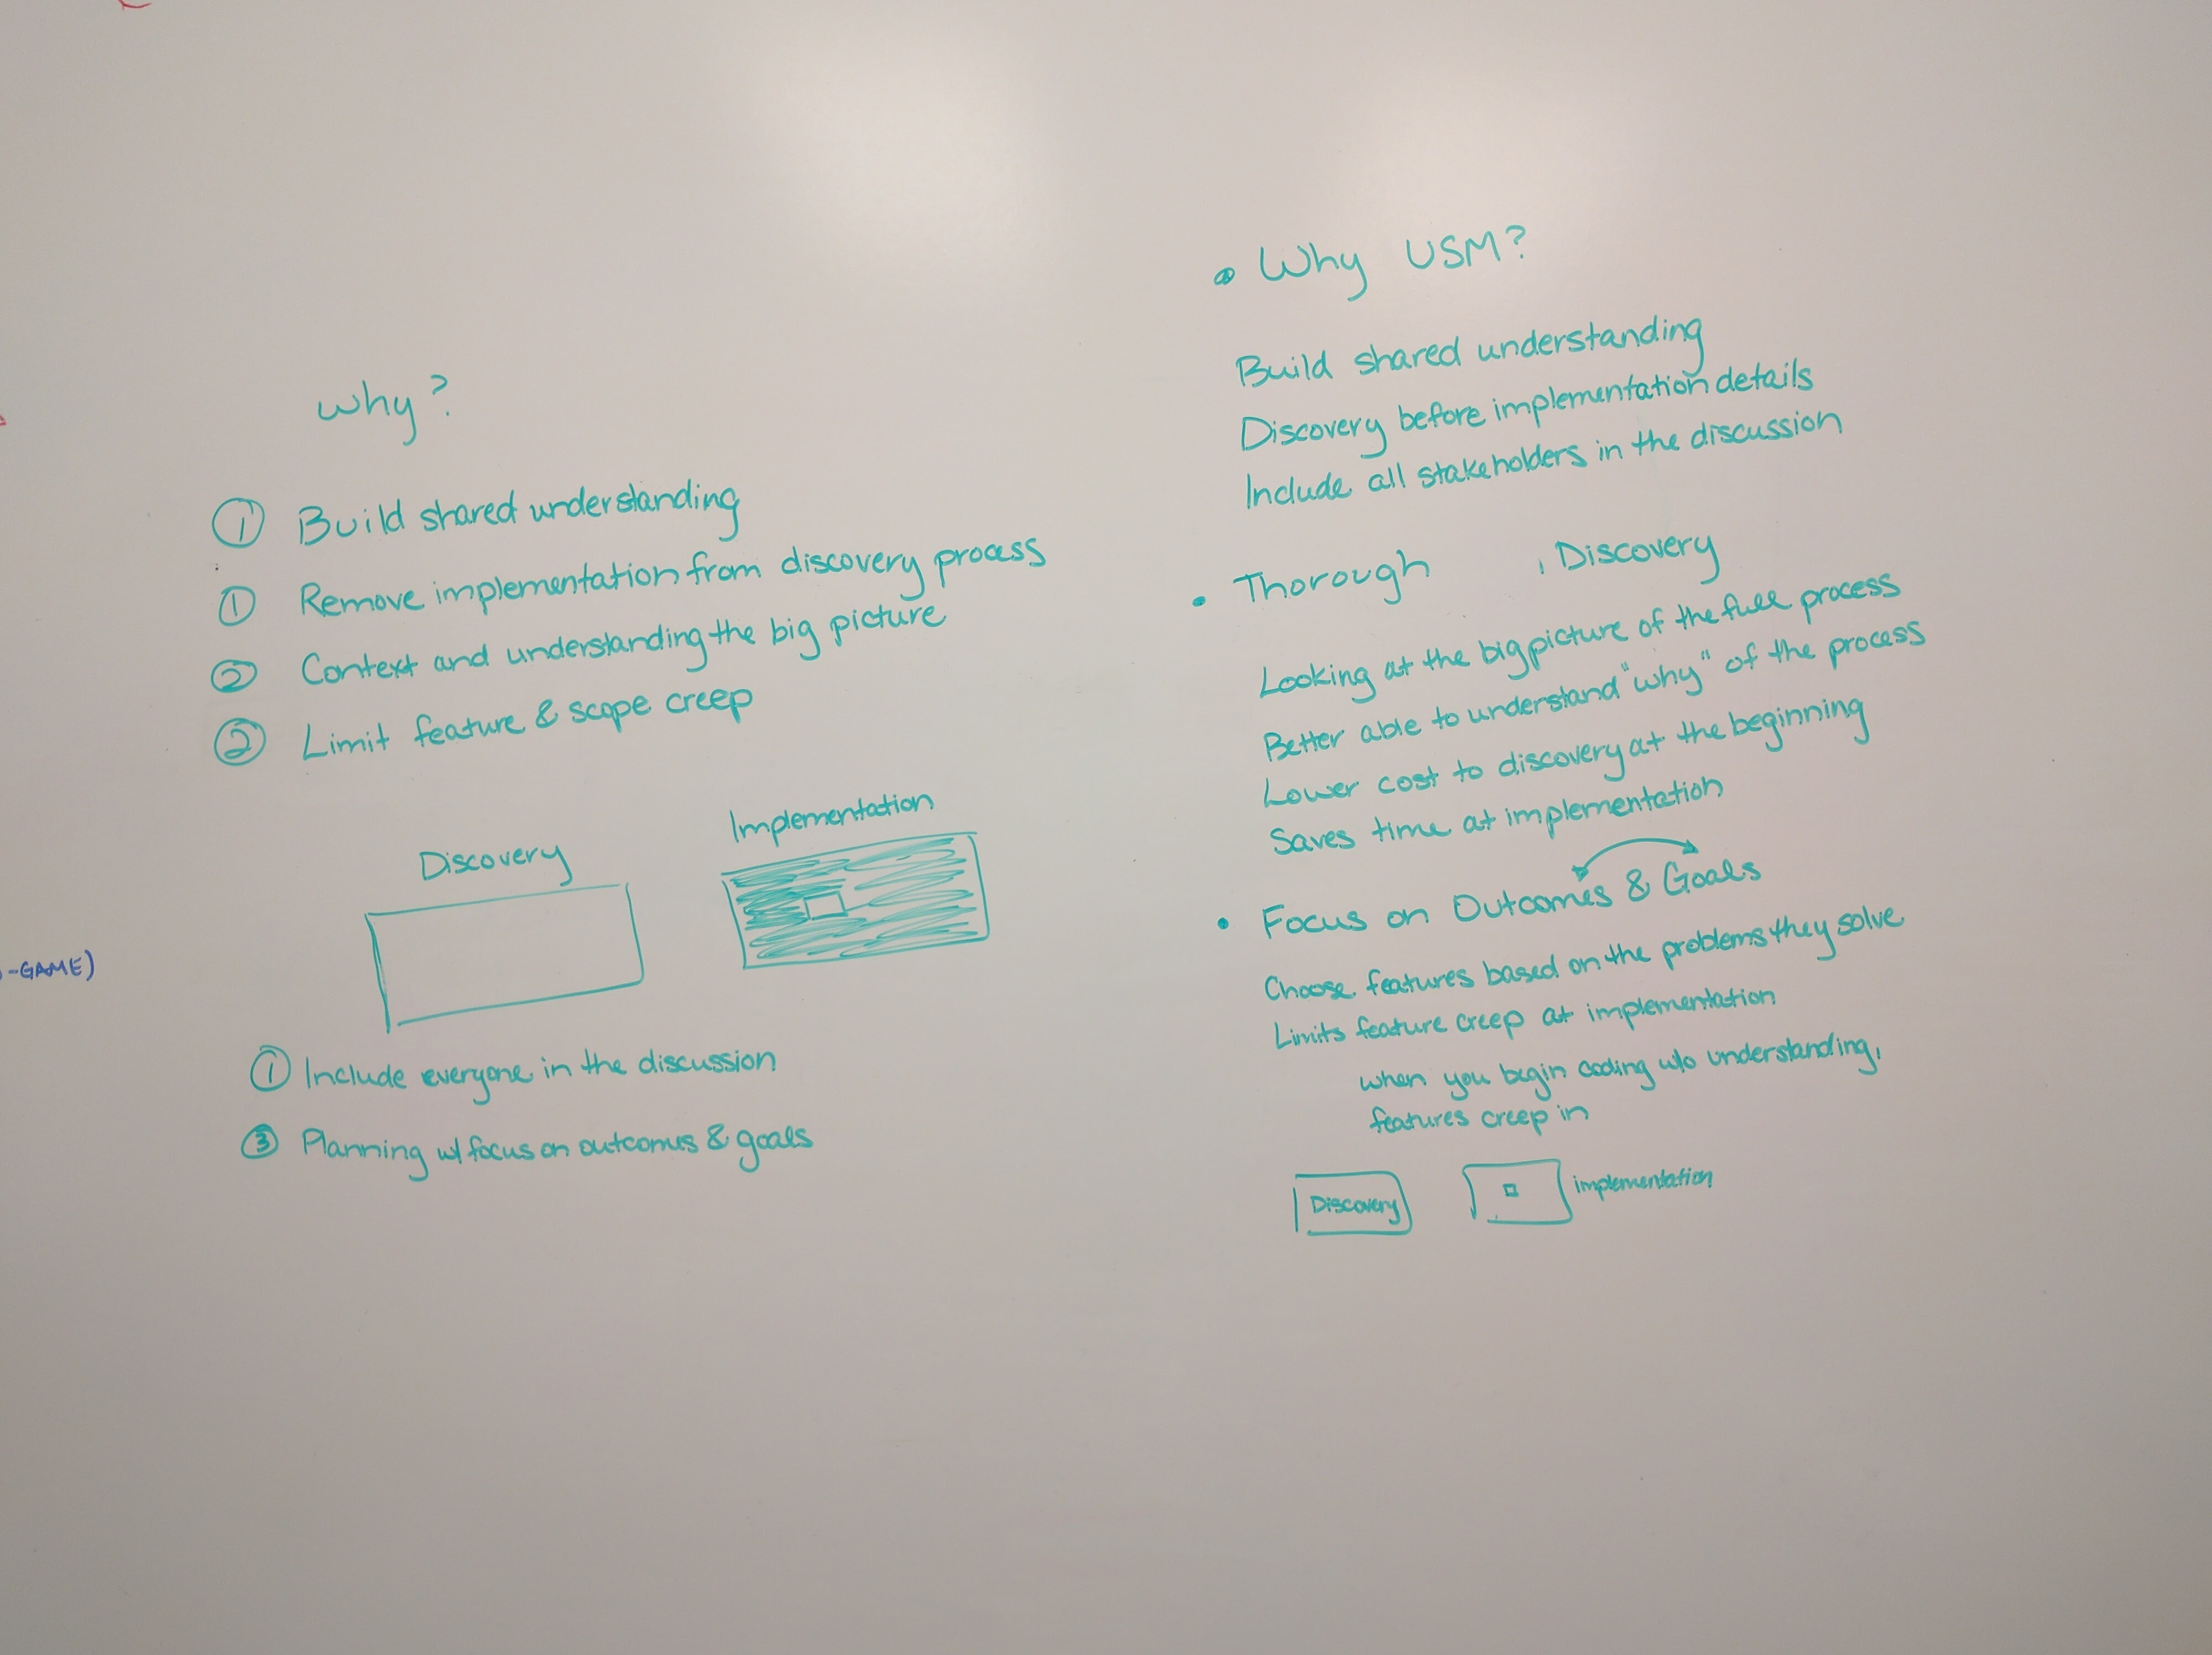 why?
① Build shared understanding
① Remove implementation from discovery process
② Context and understanding the big picture
② Limit feature & scope creep
Discovery
Implementation
① Include everyone in the discussion
③ Planning w/ focus on outcomes & goals
-GAME)
• Why USM?
Build shared understanding
Discovery before implementation details
Include all stakeholders in the discussion
• Thorough Discovery
Looking at the big picture of the full process
Better able to understand "why" of the process
Lower cost to discovery at the beginning
Saves time at implementation
• Focus on Outcomes & Goals
Choose features based on the problems they solve
Limits feature creep at implementation
when you begin coding w/o understanding,
features creep in
Discovery
implementation